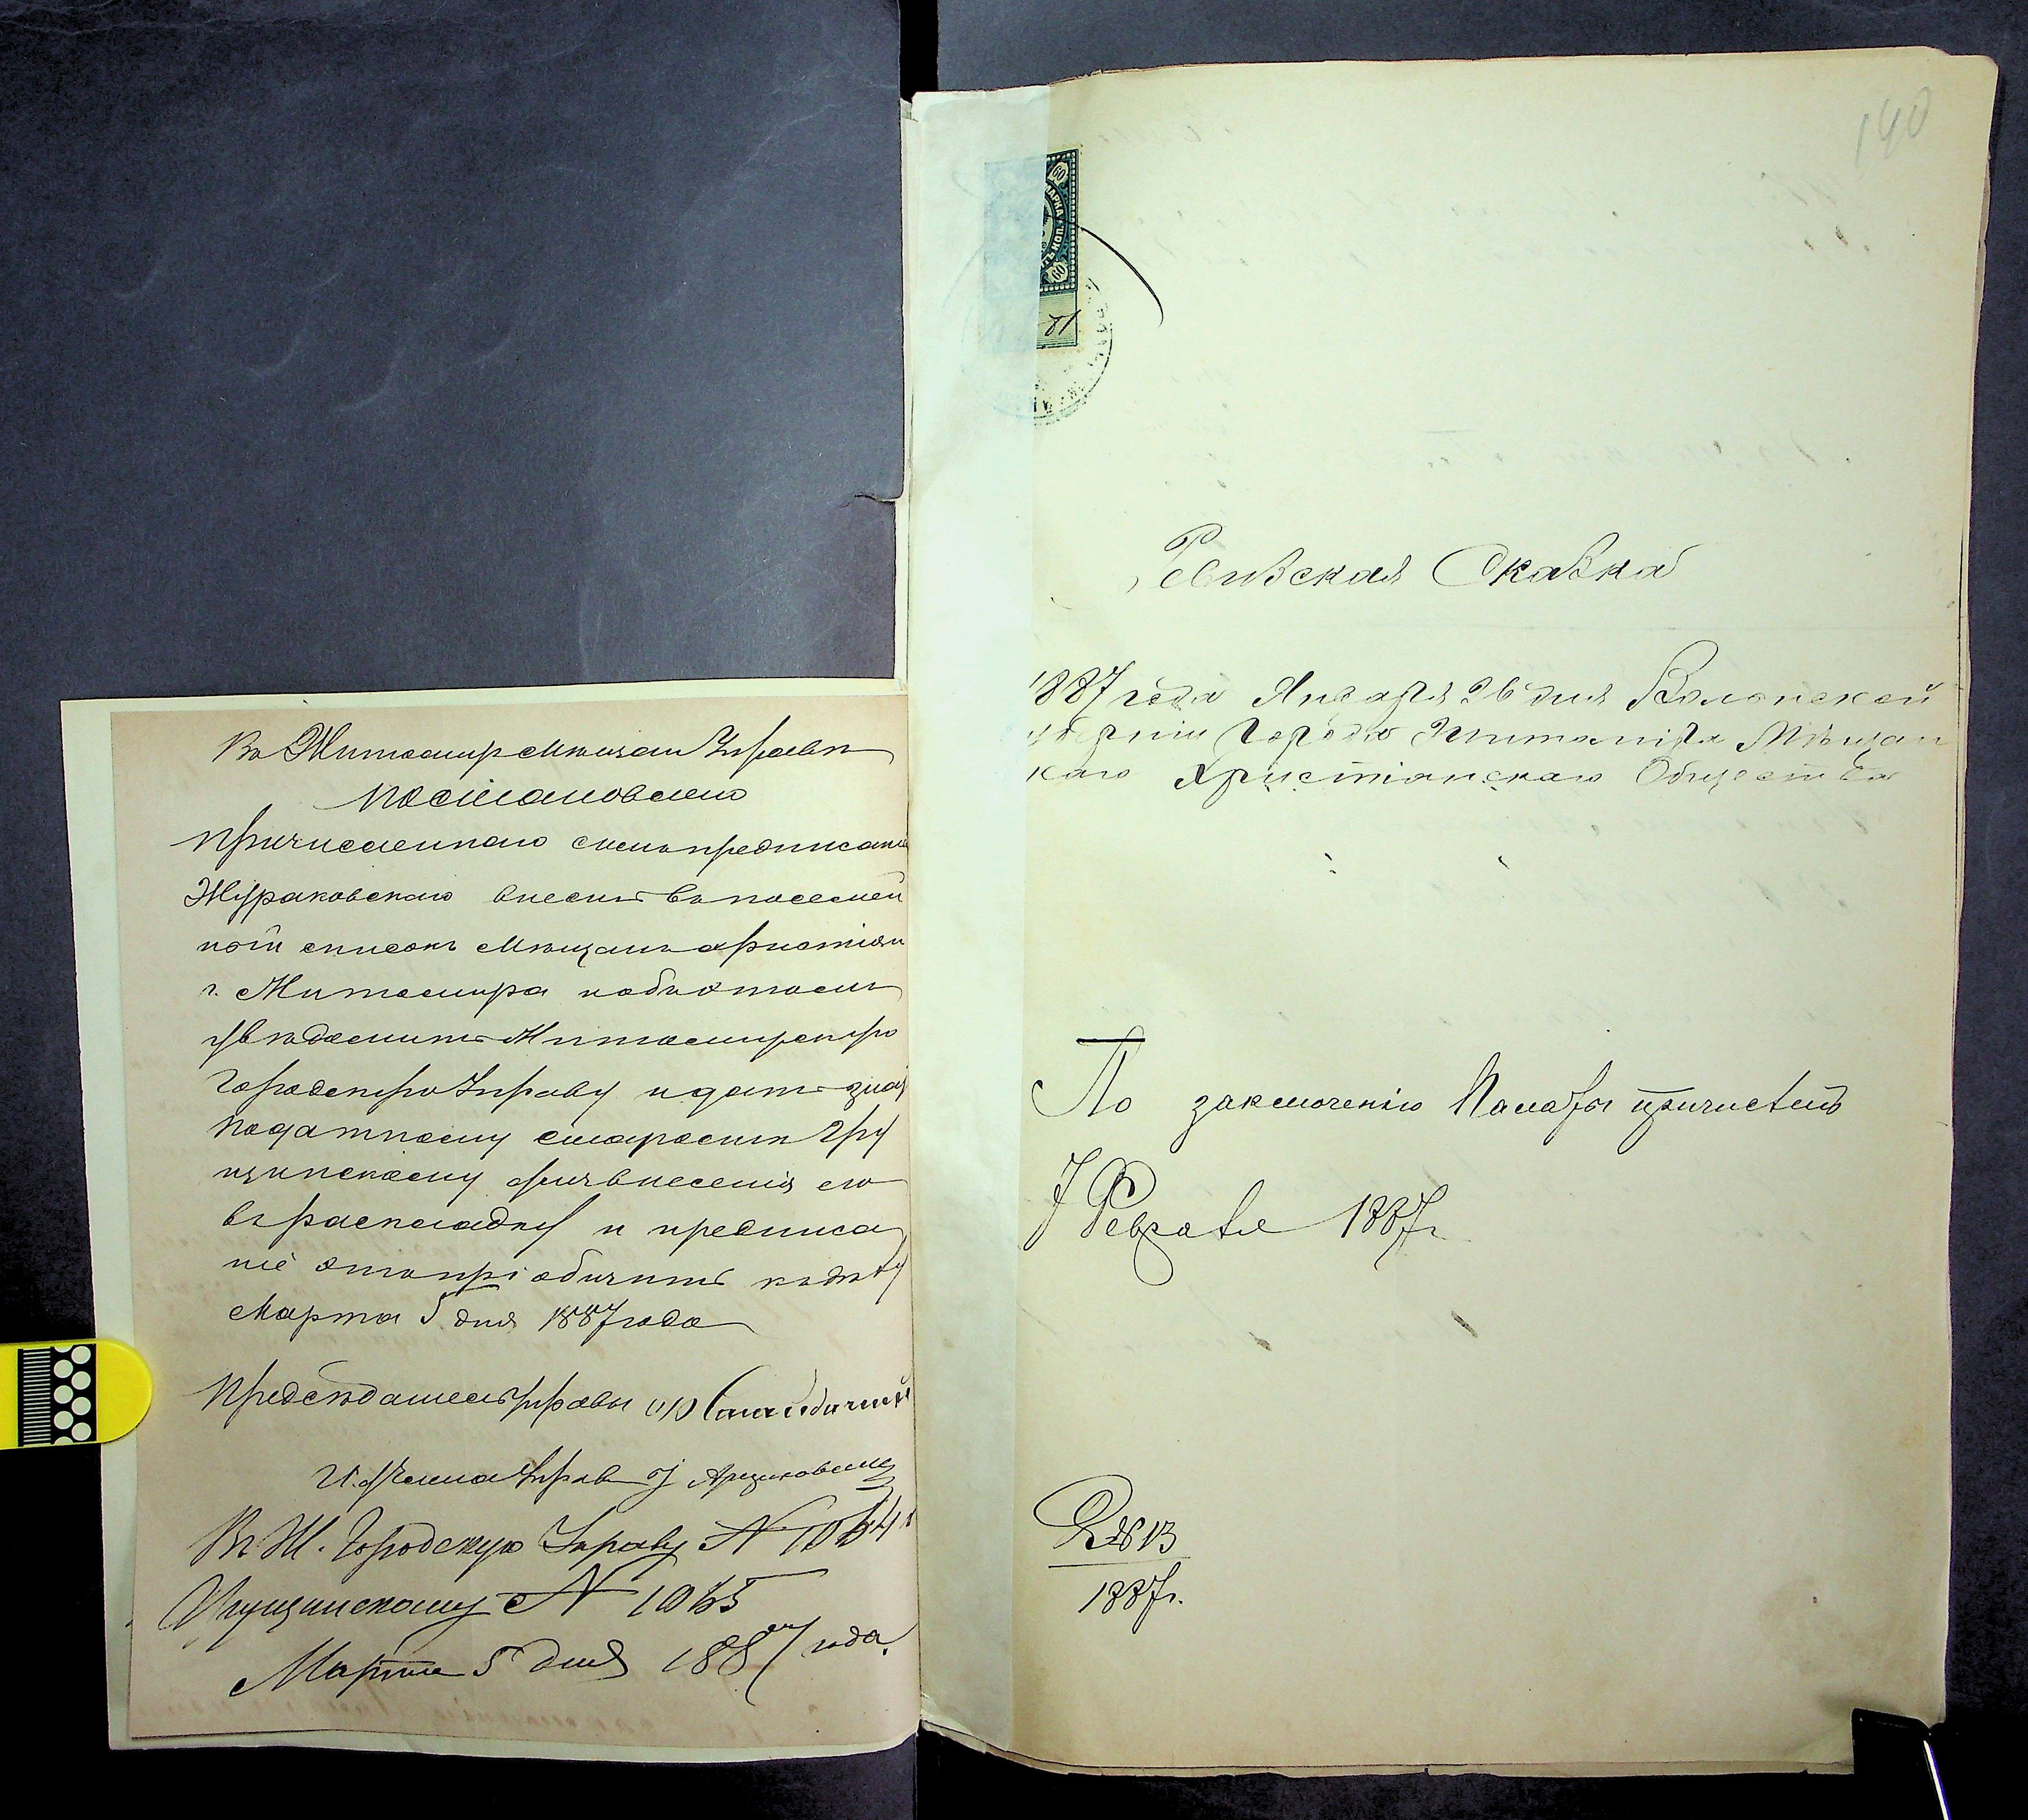 Въ Житомир Мѣщан Управѣ
постановлено
Причисленнаго симъ предписаніе
Жураковскаго внесть въ посемей
ной списокъ Мѣщанъ христіян
г. Житомира и объ этомъ
увѣдомить Житомирскую
Городскую Управу и дать знать
податному старостѣ Гру
щинскому для внесенія его
въ раскладку и предписа
ніе это пріобщить къ дѣлу
Марта 5 дня 1887 года
Предсѣдатель Управы
И. д. Члена Управ
Въ Ж. Городскую Управу N 1064
Грущинскому N 1065
Марта 5 дня 1887 года.
140
60
МАРКА
КОП.
60
Ревизская Сказка
1887 года Января 26 дня Волынской
губерніи Города Житоміра Мѣщан
скаго Христіанскаго Общества
По заключенію Палаты причисленъ
7 Февраля 1887 г.
1887 г.